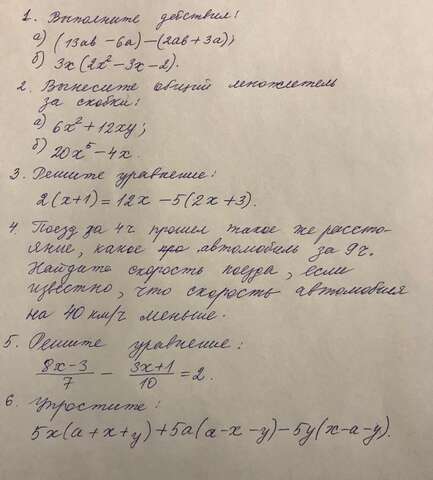 1. Выполните действия:
а) (13ab − 6a) − (2ab + 3a);
б) 3x (2x² − 3x − 2).
2. Вынесите общий множитель
за скобки:
а) 6x² + 12xy;
б) 20x⁵ − 4x.
3. Решите уравнение:
2(x+1) = 12x − 5(2x+3).
4. Поезд за 4 ч прошел такое же рассто-
яние, какое про автомобиль за 9 ч.
Найдите скорость поезда, если
известно, что скорость автомобиля
на 40 км/ч меньше.
5. Решите уравнение:
(8x−3)/7 − (3x+1)/10 = 2.
6. Упростите:
5x(a+x+y)+5a(a−x−y)−5y(x−a−y).